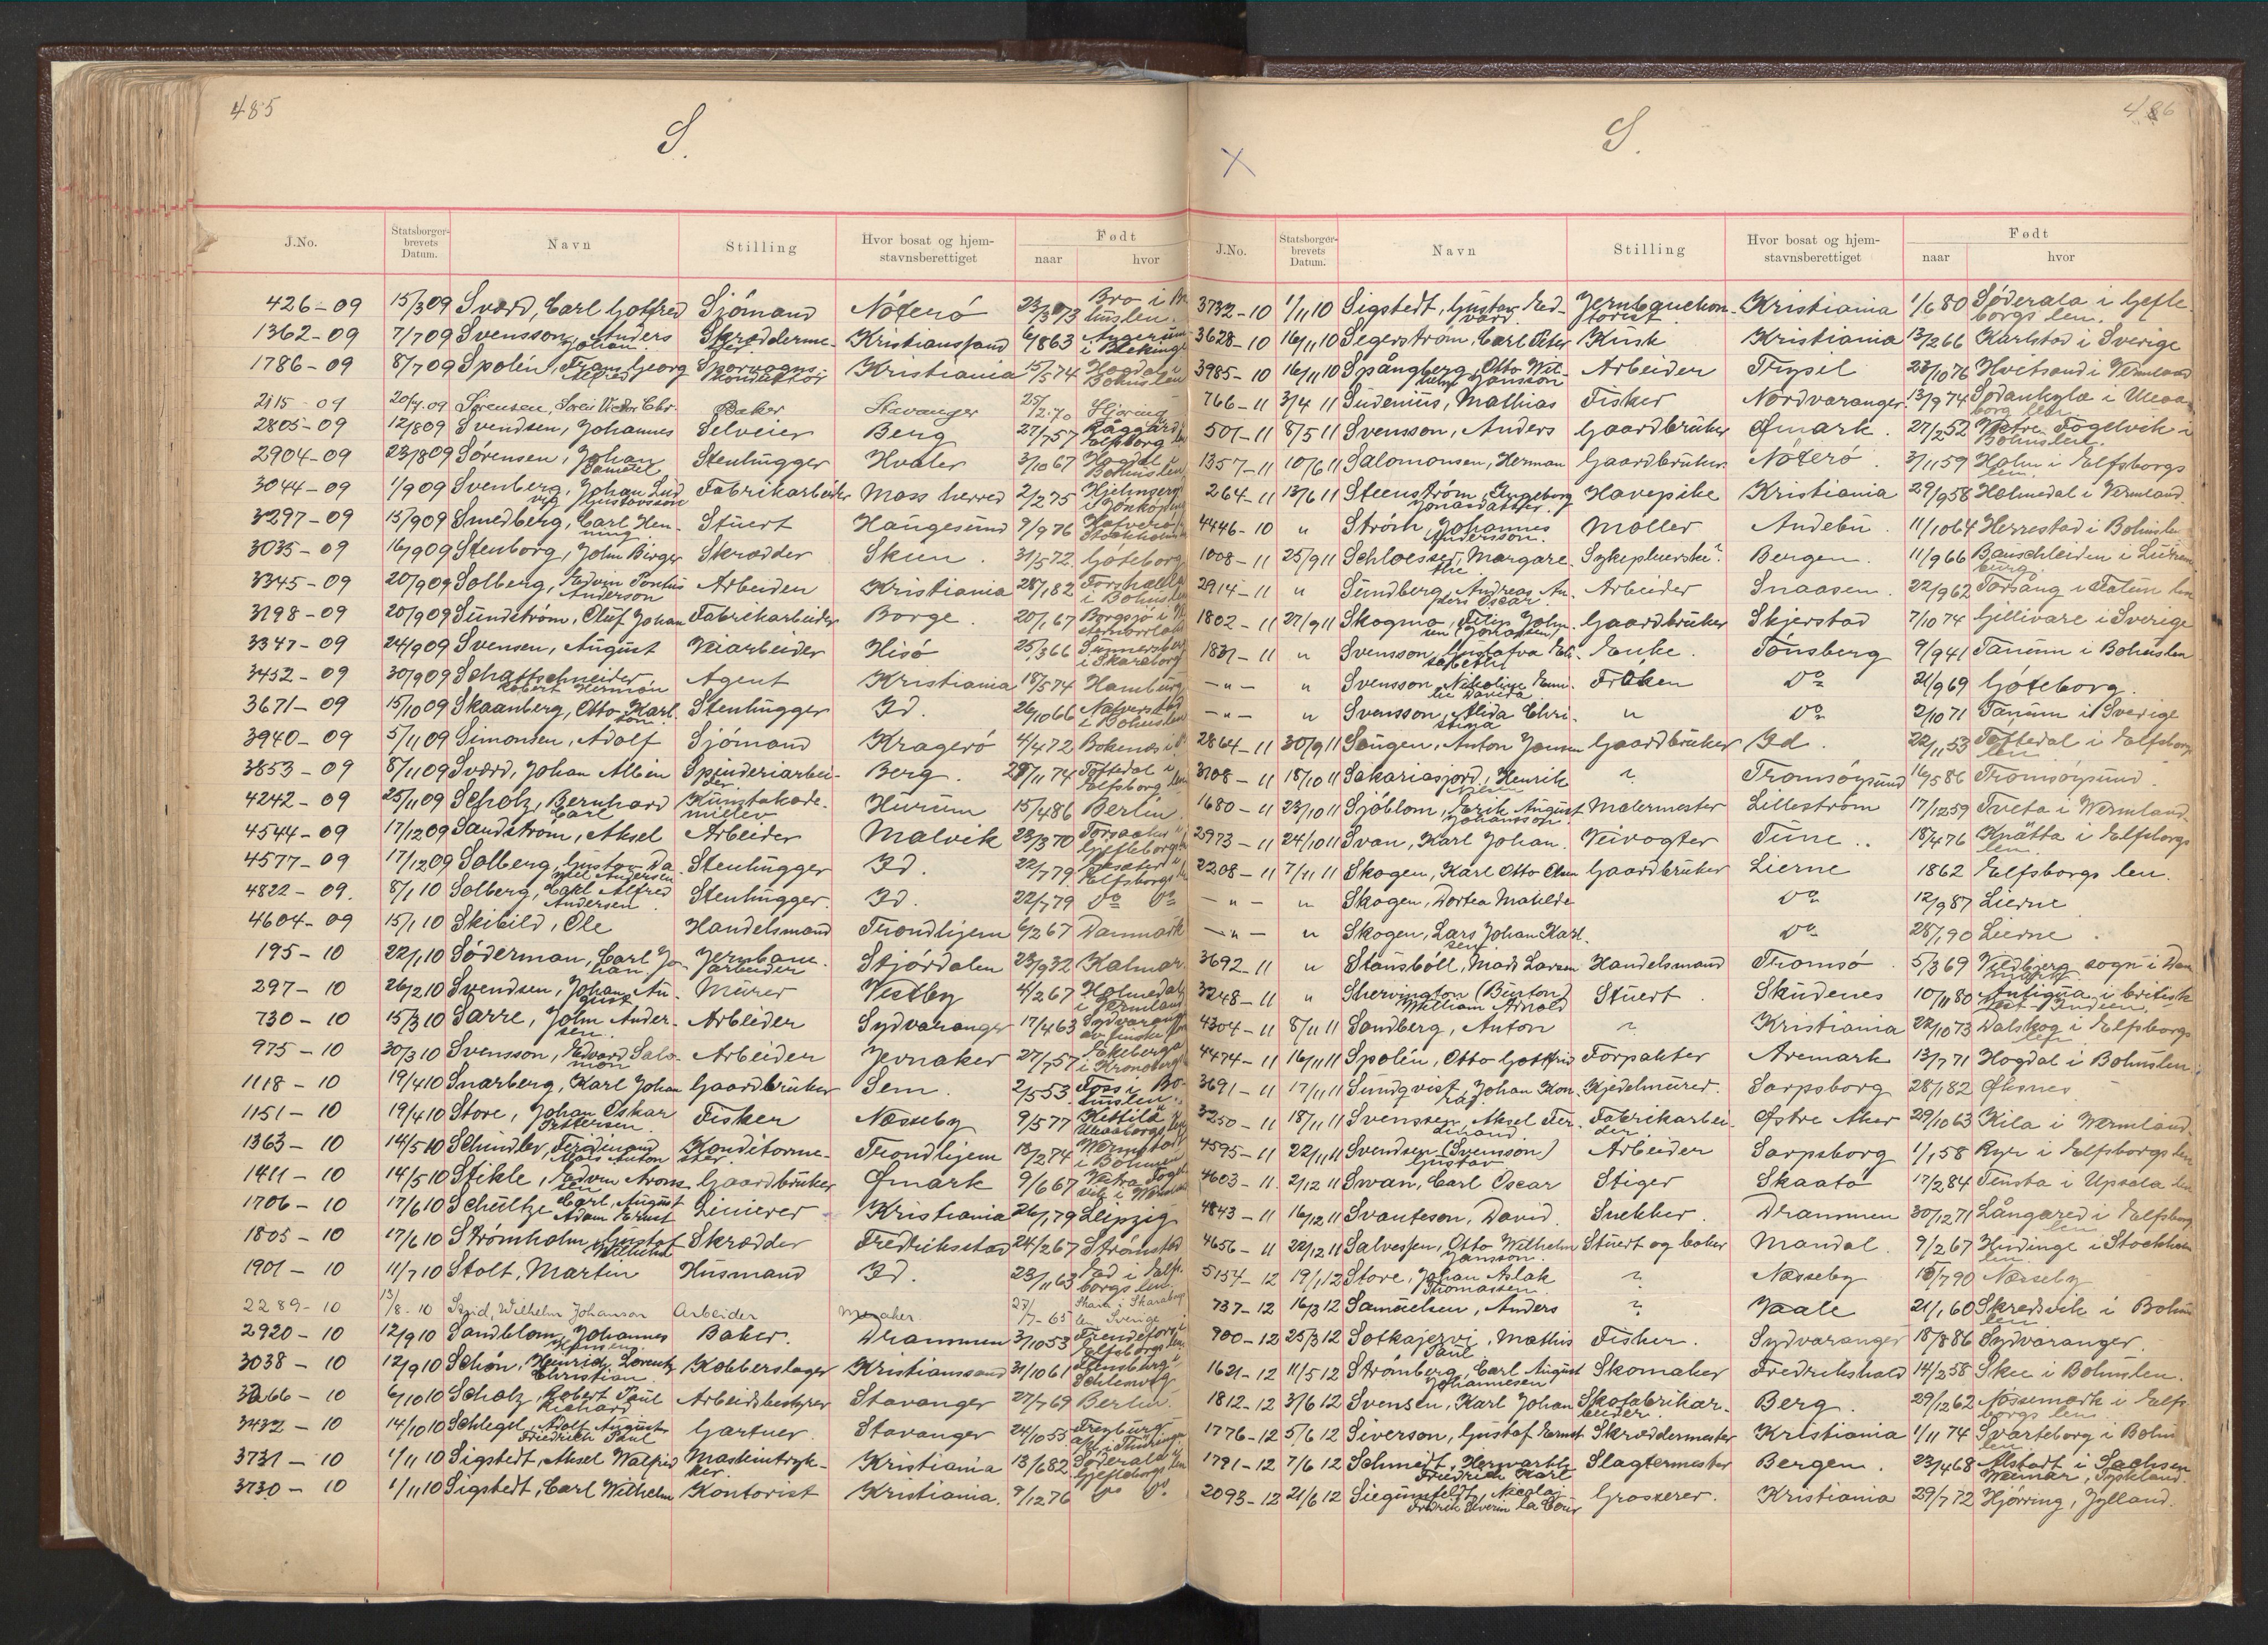 485
S.
J.No. Statsborger-brevets Datum. Navn Stilling Hvor bosat og hjem-stavnsberettiget Født naar hvor
426-09 15/3 09 Sværd, Carl Gotfred Sjömand Nöterö 23/3 73 Bro i Bohuslen.
1362-09 7/7 09 Svensson, Anders Johan Skræddermester Kristianssand 6/8 63 i Blekinge
1786-09 8/7 09 Spolén, Frans Georg Alfred Sporvognskonduktör Kristiania 15/5 74 Hogdal i Bohuslen
2115-09 20/7 09 Sörensen, Sören Victor Chr. Baker Stavanger 25/2 70 Hjöring
2805-09 12/8 09 Svendsen, Johannes Selveier Berg 27/7 57 Elfsborg len
2904-09 23/8 09 Sörensen, Johan Samuel Stenhugger Hvaler 3/10 67 Hogdal i Bohuslen
3044-09 1/9 09 Svenberg, Johan Ludvig Gustavsson Fabrikarbeider Moss herred 2/2 75 i Jönköping
3297-09 15/9 09 Smedberg, Carl Henning Stuert Haugesund 9/9 76 Stockholm
3035-09 16/9 09 Stenborg, John Birger Skrædder Skien. 31/5 72. Göteborg
3345-09 20/9 09 Solberg, Edvin Pontus Anderson Arbeider Kristiania 28/1 82 Forshälla i Bohuslen
3198-09 20/9 09 Sundström, Oluf Johan Fabrikarbeider Borge. 20/1 67 Borgsjö i
3347-09 24/9 09 Svensen, August Veiarbeider Hisö 25/3 66 i Skaraborg
3452-09 30/9 09 Schattschneider, Robert Herman Agent Kristiania 18/5 74 Hamburg
3671-09 15/10 09 Skaanberg, Otto Karlson Stenhugger Id. 26/10 66 Näverstad i Bohuslen
3940-09 5/11 09 Simonsen, Adolf Sjömand Kragerö 4/4 72 Bokenäs i
3853-09 8/11 09 Sværd, Johan Albin Spinderiarbeider Berg. 11 74 Töftedal i Elfsborg len
4242-09 25/11 09 Scholz, Bernhard Carl Kunstakademielev Hurum 15/4 86 Berlin.
4544-09 17/12 09 Sandström, Aksel Arbeider Malvik 23/3 70 Gefleborgs
4577-09 17/12 09 Solberg, Gustav Daniel Andersen Stenhugger Id. 22/7 79. Elfsborgs len
4822-09. 8/1 10 Solberg, Carl Alfred Andersen Stenhugger. Id. 22/7 79 Do Do
4604-09 15/1 10 Skibild, Ole Handelsmand Trondhjem 6/2 67 Danmark
195-10 22/1 10 Söderman, Carl Johan. Jernbanearbeider Stjördalen 23/9 32 Kalmar.
297-10 26/2 10 Svendsen, Johan August Murer Vestby 4/2 67 Holmedal i Vermland
730-10 15/3 10 Sarre, John Andersen Arbeider Sydvaranger 17/4 63 Sydvaranger
975-10 30/3 10 Svensson, Edvard Salomon Arbeider Jevnaker 27/1 57 Ekeberga i Kronoberg
1118-10 19/4 10 Snarberg, Karl Johan Gaardbruker Sem. 2/5 53. Foss i Bohuslen.
1151-10 19/4 10 Store, Johan Oskar Pettersen. Fisker Næsseby 9/5 77 Kittilä Uleaborgs len
1363-10 14/5 10 Schindler, Ferdinand Alois Anton Konditormester Trondhjem 13/2 74 i Böhmen
1411-10 14/5 10 Stikle, Edvin Aronsen Gaardbruker Ømark 9/6 67
1706-10 17/6 10 Schultze, Carl August Adam Ernst Linierer Kristiania 26/1 79 Leipzig
1805-10 17/6 10 Strömholm, Gustof Wilhelm Skrædder Fredriksstad 24/2 67 Strömstad
1901-10 11/7 10 Stolt, Martin Husmand Id. 23/11 63 Ed i Elfsborgs len.
2289-10 13/8-10 Szid, Wilhelm Johanson Arbeider Meraker. 27/7-65 Skara i Skaraborgs len Sverige
2920-10 12/9 10 Sandblom, Johannes Hansen Baker. Drammen 3/10 53 Elfsborgs len.
3038-10 12/9 10 Schön, Henrich Lorentz Christian. Kobberslager Kristianssand 31/10 61 Flensburg i Schleswig
3266-10 6/10 10 Scholz, Robert Paul Richard Arbeidsbestyrer Stavanger 27/7 69 Berlin.
3432-10 14/10 10 Schlegel, Adolf August Friedrich Paul Gartner. Stavanger 24/10 55 Freyburg
3731-10 1/11 10 Sigstedt, Aksel Walfrid Maskintrykker. Kristiania 13/6 82 Söderala i Gefleborgs len
3730-10 1/11 10 Sigstedt, Carl Wilhelm Kontorist Kristiania. 9/12 76 Do Do.
486
S.
X
J.No. Statsborger-brevets Datum. Navn Stilling Hvor bosat og hjem-stavnsberettiget Født naar hvor
3732-10 1/11 10 Sigstedt, Gustav Edvard Kristiania 1/6 80 Söderala i Gefleborgs len.
3628-10 16/11 10 Segerström, Carl Peter Kusk Kristiania 13/2 66 Karlstad i Sverige
3985-10 16/11 10 Spångberg, Otto Wilhelm Jansson Arbeider Trysil 23/10 76 Hvitsand i Vermland
766-11 3/4 11 Sudenius, Mathias Fisker Nordvaranger. 13/9 74 Sodankylæ i Uleaaborg len
501-11 8/5 11 Svensson, Anders Gaardbruker Ømark. 27/2 52 Vestre Fogelvik i Bohuslen.
1357-11 10/6 11 Salomonsen, Herman Gaardbruker. Nöterö. 3/11 59 Holm i Elfsborgs len
264-11 13/6 11 Steenström, Ingeborg Jonasdatter. Havepike Kristiania 29/9 58 Holmedal i Vermland
4446-10 " Ström, Johannes Andersson. Möller Andebu 11/10 64 Herrestad i Bohuslen
1008-11 25/9 11 Schloesser, Margarethe Sykepleierske. Bergen. 11/9 66 Bauschleiden i Luxemburg.
2914-11 " Sundberg, Andreas Anders Oscar. Arbeider Snaasen. 22/9 62 Torsång i Falun len
1802-11 27/9 11 Skogmo, Filip Johnsen (Jonassen) Gaardbruker Skjerstad 7/10 74 Gillivare i Sverige
1831-11 " Svensson, Gustafva Elisabeth Enke. Tönsberg 9/9 41 Tanum i Bohuslen
-"- " Svensson, Nikoline Emilie Davida Fröken Do 21/9 69 Göteborg.
-"- " Svensson, Alida Christina " Do 2/10 71 Tanum i Sverige
2864-11 30/9 11 Saugen, Anton Jansen Gaardbruker Id. 22/11 53 Töftedal i Elfsborgs len
3108-11 18/10 11 Sakariasjord, Henrik Nilsen ? Tromsöysund 16/5 86 Tromsöysund.
1680-11 23/10 11 Sjöblom, Erik August Johansson. Malermester Lilleström 17/12 59 Tveta i Wermland
2973-11 24/10 11 Svan, Karl Johan. Veivogter Tune.. 18/4 76 Knätta i Elfsborgs len.
2208-11 7/11 11 Skogen, Karl Otto Olsen Gaardbruker Lierne 1862 Elfsborgs len.
-"- " Skogen, Dortea Matilde Do 12/9 87 Lierne
-"- " Skogen, Lars Johan Karlsen Do 28/1 90 Lierne.
3692-11 " Stausböll, Mads Larsen Handelsmand Tromsö. 5/3 69 Vildbjerg sogn i Danmark
3248-11 " Shervington (Burton) William Arnold Stuert. Skudenes 10/11 80 Antigua i britisk Vest-Indien
4304-11 8/11 11 Sandberg, Anton ? Kristiania 22/10 73 Dalskog i Elfsborgs len
4474-11 16/11 11 Spolén, Otto Gottfrid Forpakter Aremark 13/7 71 Hogdal i Bohuslen.
3691-11 17/11 11 Sundqvist, Johan Konrad Kjedelmurer. Sarpsborg 28/1 82 Øksnes
3250-11 18/11 11 Svenssen, Aksel Ferdinand Fabrikarbeider Østre Aker 29/10 63 Kila i Vermland.
4595-11 22/11 11 Svendsen (Svensson) Gustav Arbeider Sarpsborg 1/1 58 Ryr i Elfsborgs len
4603-11. 2/12 11 Swan, Carl Oscar Stiger Skaatö 17/2 84 Tensta i Upsala len
4843-11 16/12 11 Svanteson, David. Snekker. Drammen 30/12 71 Långared i Elfsborg len
4656-11 22/12 11 Salvessen, Otto Wilhelm Jansson. Stuert og baker Mandal. 9/2 67 Hudinge i Stockholm len.
5154-12 19/1 12 Store, Johan Aslak Thomassen ? Næsseby 7 90 Næsseby
737-12 16/3 12 Samuelsen, Anders ? Vaale 21/1 60 Skredsvik i Bohuslen
900-12 25/3 12 Sotkajervi, Mathis Paul Fisker. Sydvaranger 18/8 86 Sydvaranger.
1621-12 11/5 12 Strömberg, Carl August Johannesen Skomaker Fredrikshald 14/2 58 Skee i Bohuslen.
1812-12 3/6 12 Svensen, Karl Johan Skofabrikarbeider. Berg. 29/12 62 Nössemark i Elfsborgs len
1776-12 5/6 12 Siverson, Gustaf Ernst Skræddermester Kristiania 1/11 74 Svarteborg i Bohuslen
1791-12 7/6 12 Schmidt, Herwarth Friedrich Karl Slagtermester Bergen. 23/4 68 Alstadt i Sachsen Weimar, Tyskland
2093-12 21/6 12 Siegumfeldt, Nicolaj Fredrik Severin la Cour Grosserer. Kristiania 29/7 72 Hjörring, Jylland.